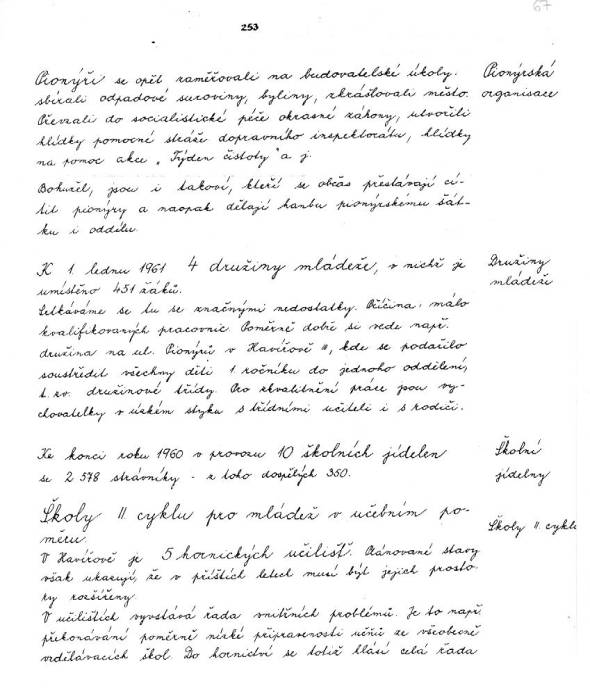 253
67
Pionýři se opět zaměřovali na budovatelské úkoly.
sbírali odpadové suroviny, byliny, zkrášlovali město.
Převzali do socialistické péče okrasné záhony, utvořili
hlídky pomocné stráže dopravního inspektorátu, hlídky
na pomoc akce „Týden čistoty" a j.
Pionýrská
organisace
Bohužel, jsou i takoví, kteří se občas přestávají cí-
tit pionýry a naopak dělají hanbu pionýrskému šát-
ku i oddílu.
K 1. lednu 1961 4 družiny mládeže, v nichž je
umístěno 451 žáků.
Družiny
mládeže
Setkáváme se tu se značnými nedostatky. Příčina: málo
kvalifikovaných pracovnic. Poměrně dobře si vede např.
družina na ul. Pionýrů v Havířově III, kde se podařilo
soustředit všechny děti 1 ročníku do jednoho oddělení,
t. zv. družinové třídy. Pro zkvalitnění práce jsou vy-
chovatelky v úzkém styku s třídními učiteli i s rodiči.
Ke konci roku 1960 v provozu 10 školních jídelen
se 2 578 strávníky - z toho dospělých 350.
Školní
jídelny
Školy II cyklu pro mládež v učebním po-
měru.
Školy II. cyklu
V Havířově je 5 hornických učilišť. Plánované stavy
však ukazují, že v příštích letech musí být jejich prosto-
ry rozšířeny.
V učilištích vyvstává řada vnitřních problémů. Je to např.
překonávání poměrně nízké připravenosti učňů ze všeobecně
vzdělávacích škol. Do hornictví se totiž hlásí celá řada